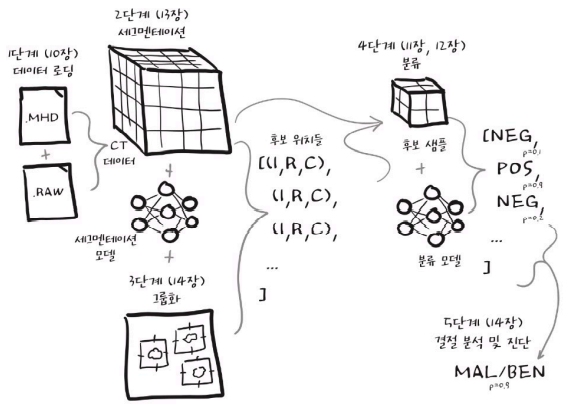 1단계 (10장)
데이터 로딩
.MHD
+
.RAW
2단계 (13장)
세그멘테이션
CT
데이터
+
세그멘테이션
모델
+
3단계 (14장)
그룹화
후보 위치들
[(I,R,C),
(I,R,C),
(I,R,C),
...
]
4단계 (11장, 12장)
분류
후보 샘플
+
분류 모델
[NEG,
p=0.1
POS,
p=0.9
NEG,
p=0.2
...
]
5단계 (14장)
결절 분석 및 진단
MAL/BEN
p=0.9